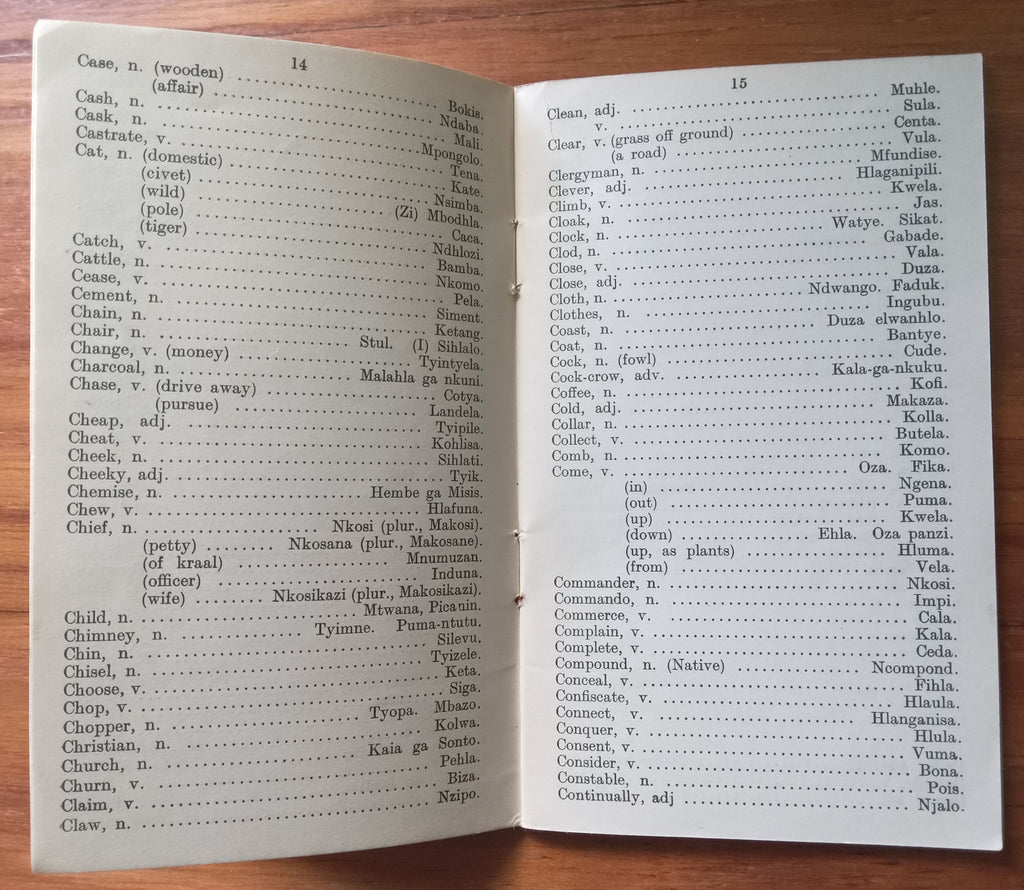 14
Case, n. (wooden) .......... Bokis.
(affair) .......... Ndaba.
Cash, n. .......... Mali.
Cask, n. .......... Mpongolo.
Castrate, v. .......... Tena.
Cat, n. (domestic) .......... Kate.
(civet) .......... Nsimba.
(wild) .......... (Zi) Mbodhla.
(pole) .......... Caca.
(tiger) .......... Ndhlozi.
Catch, v. .......... Bamba.
Cattle, n. .......... Nkomo.
Cease, v. .......... Pela.
Cement, n. .......... Siment.
Chain, n. .......... Ketang.
Chair, n. .......... Stul. (I) Sihlalo.
Change, v. (money) .......... Tyintyela.
Charcoal, n. .......... Malahla ga nkuni.
Chase, v. (drive away) .......... Cotya.
(pursue) .......... Landela.
Cheap, adj. .......... Tyipile.
Cheat, v. .......... Kohlisa.
Cheek, n. .......... Sihlati.
Cheeky, adj. .......... Tyik.
Chemise, n. .......... Hembe ga Misis.
Chew, v. .......... Hlafuna.
Chief, n. .......... Nkosi (plur., Makosi).
(petty) ........ Nkosana (plur., Makosane).
(of kraal) .......... Mnumuzan.
(officer) .......... Induna.
(wife) ........ Nkosikazi (plur., Makosikazi).
Child, n. .......... Mtwana, Picanin.
Chimney, n. .......... Tyimne. Puma-ntutu.
Chin, n. .......... Silevu.
Chisel, n. .......... Tyizele.
Choose, v. .......... Keta.
Chop, v. .......... Siga.
Chopper, n. .......... Tyopa. Mbazo.
Christian, n. .......... Kolwa.
Church, n. .......... Kaia ga Sonto.
Churn, v. .......... Pehla.
Claim, v. .......... Biza.
Claw, n. .......... Nzipo.
15
Clean, adj. .......... Muhle.
v. .......... Sula.
Clear, v. (grass off ground) .......... Centa.
(a road) .......... Vula.
Clergyman, n. .......... Mfundise.
Clever, adj. .......... Hlaganipili.
Climb, v. .......... Kwela.
Cloak, n. .......... Jas.
Clock, n. .......... Watye. Sikat.
Clod, n. .......... Gabade.
Close, v. .......... Vala.
Close, adj. .......... Duza.
Cloth, n. .......... Ndwango. Faduk.
Clothes, n. .......... Ingubu.
Coast, n. .......... Duza elwanhlo.
Coat, n. .......... Bantye.
Cock, n. (fowl) .......... Cude.
Cock-crow, adv. .......... Kala-ga-nkuku.
Coffee, n. .......... Kofi.
Cold, adj. .......... Makaza.
Collar, n. .......... Kolla.
Collect, v. .......... Butela.
Comb, n. .......... Komo.
Come, v. .......... Oza. Fika.
(in) .......... Ngena.
(out) .......... Puma.
(up) .......... Kwela.
(down) .......... Ehla. Oza panzi.
(up, as plants) .......... Hluma.
(from) .......... Vela.
Commander, n. .......... Nkosi.
Commando, n. .......... Impi.
Commerce, v. .......... Cala.
Complain, v. .......... Kala.
Complete, v. .......... Ceda.
Compound, n. (Native) .......... Ncompond.
Conceal, v. .......... Fihla.
Confiscate, v. .......... Hlaula.
Connect, v. .......... Hlanganisa.
Conquer, v. .......... Hlula.
Consent, v. .......... Vuma.
Consider, v. .......... Bona.
Constable, n. .......... Pois.
Continually, adj .......... Njalo.